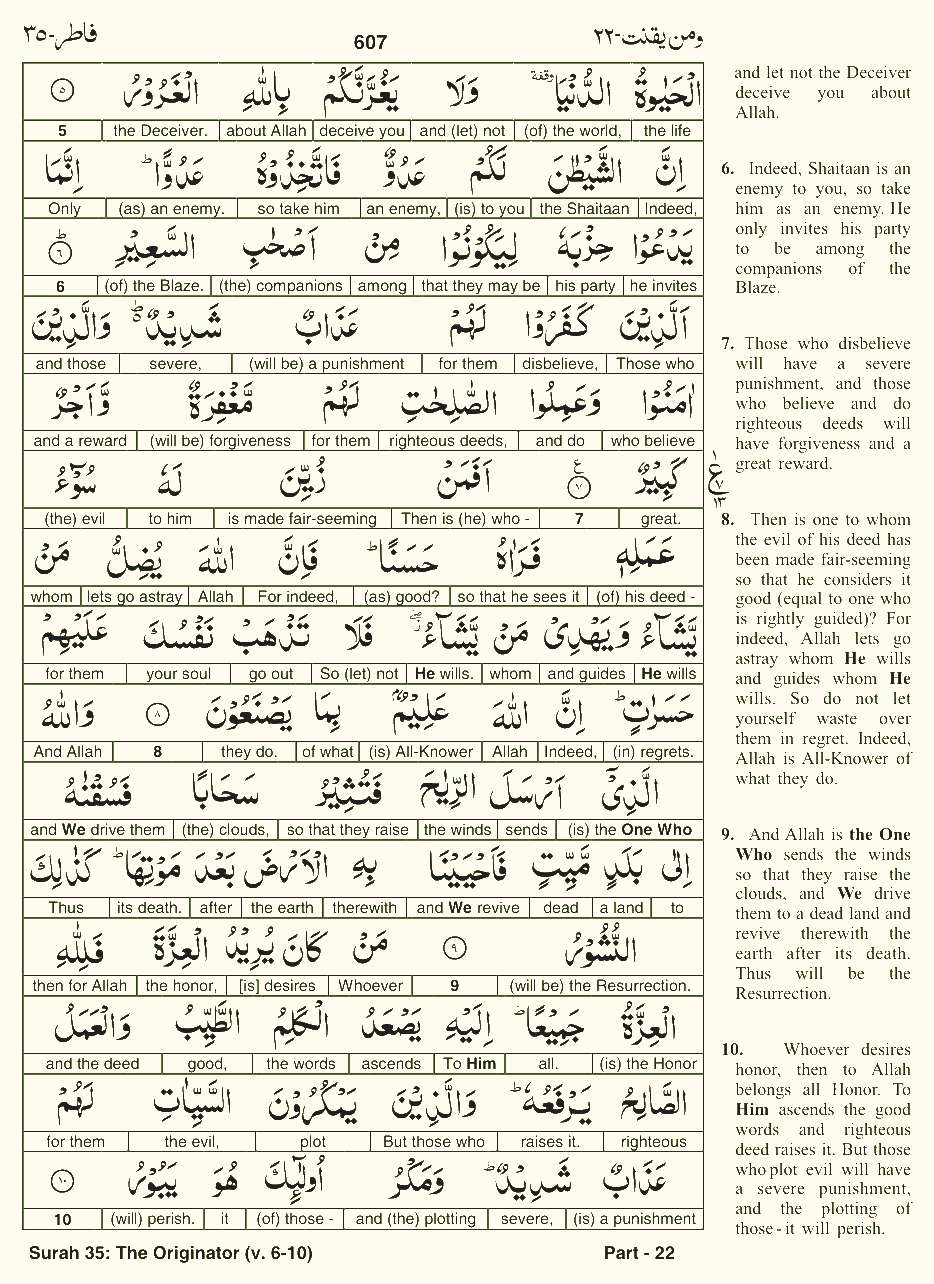 فاطر-٣٥
607
ومن يقنت-٢٢
الْحَيٰوةُ الدُّنْيَا وقفة وَلَا يَغُرَّنَّكُمْ بِاللّٰهِ الْغَرُوْرُ ٥
the life (of) the world, and (let) not deceive you about Allah the Deceiver. 5
اِنَّ الشَّيْطٰنَ لَكُمْ عَدُوٌّ فَاتَّخِذُوْهُ عَدُوًّا ؕ اِنَّمَا
Indeed, the Shaitaan (is) to you an enemy, so take him (as) an enemy. Only
يَدْعُوْا حِزْبَهٗ لِيَكُوْنُوْا مِنْ اَصْحٰبِ السَّعِيْرِ ؕ ٦
he invites his party that they may be among (the) companions (of) the Blaze. 6
اَلَّذِيْنَ كَفَرُوْا لَهُمْ عَذَابٌ شَدِيْدٌ ۬ؕ وَالَّذِيْنَ
Those who disbelieve, for them (will be) a punishment severe, and those
اٰمَنُوْا وَعَمِلُوا الصّٰلِحٰتِ لَهُمْ مَّغْفِرَةٌ وَّاَجْرٌ
who believe and do righteous deeds, for them (will be) forgiveness and a reward
كَبِيْرٌ ٧ ع اَفَمَنْ زُيِّنَ لَهٗ سُوْٓءُ
great. 7 Then is (he) who - is made fair-seeming to him (the) evil
ع ١ ٧ ١٣
عَمَلِهٖ فَرَاٰهُ حَسَنًا ؕ فَاِنَّ اللّٰهَ يُضِلُّ مَنْ
(of) his deed - so that he sees it (as) good? For indeed, Allah lets go astray whom
يَّشَآءُ وَيَهْدِيْ مَنْ يَّشَآءُ ۖؗ فَلَا تَذْهَبْ نَفْسُكَ عَلَيْهِمْ
He wills and guides whom He wills. So (let) not go out your soul for them
حَسَرٰتٍ ؕ اِنَّ اللّٰهَ عَلِيْمٌۢ بِمَا يَصْنَعُوْنَ ٨ وَاللّٰهُ
(in) regrets. Indeed, Allah (is) All-Knower of what they do. 8 And Allah
الَّذِيْٓ اَرْسَلَ الرِّيٰحَ فَتُثِيْرُ سَحَابًا فَسُقْنٰهُ
(is) the One Who sends the winds so that they raise (the) clouds, and We drive them
اِلٰى بَلَدٍ مَّيِّتٍ فَاَحْيَيْنَا بِهِ الْاَرْضَ بَعْدَ مَوْتِهَا ؕ كَذٰلِكَ
to a land dead and We revive therewith the earth after its death. Thus
النُّشُوْرُ ٩ مَنْ كَانَ يُرِيْدُ الْعِزَّةَ فَلِلّٰهِ
(will be) the Resurrection. 9 Whoever [is] desires the honor, then for Allah
الْعِزَّةُ جَمِيْعًا ؕ اِلَيْهِ يَصْعَدُ الْكَلِمُ الطَّيِّبُ وَالْعَمَلُ
(is) the Honor all. To Him ascends the words good, and the deed
الصَّالِحُ يَرْفَعُهٗ ؕ وَالَّذِيْنَ يَمْكُرُوْنَ السَّيِّاٰتِ لَهُمْ
righteous raises it. But those who plot the evil, for them
عَذَابٌ شَدِيْدٌ ؕ وَمَكْرُ اُولٰٓئِكَ هُوَ يَبُوْرُ ١٠
(is) a punishment severe, and (the) plotting (of) those - it (will) perish. 10
and let not the Deceiver
deceive you about
Allah.
6. Indeed, Shaitaan is an
enemy to you, so take
him as an enemy. He
only invites his party
to be among the
companions of the
Blaze.
7. Those who disbelieve
will have a severe
punishment, and those
who believe and do
righteous deeds will
have forgiveness and a
great reward.
8. Then is one to whom
the evil of his deed has
been made fair-seeming
so that he considers it
good (equal to one who
is rightly guided)? For
indeed, Allah lets go
astray whom He wills
and guides whom He
wills. So do not let
yourself waste over
them in regret. Indeed,
Allah is All-Knower of
what they do.
9. And Allah is the One
Who sends the winds
so that they raise the
clouds, and We drive
them to a dead land and
revive therewith the
earth after its death.
Thus will be the
Resurrection.
10. Whoever desires
honor, then to Allah
belongs all Honor. To
Him ascends the good
words and righteous
deed raises it. But those
who plot evil will have
a severe punishment,
and the plotting of
those - it will perish.
Surah 35: The Originator (v. 6-10)
Part - 22